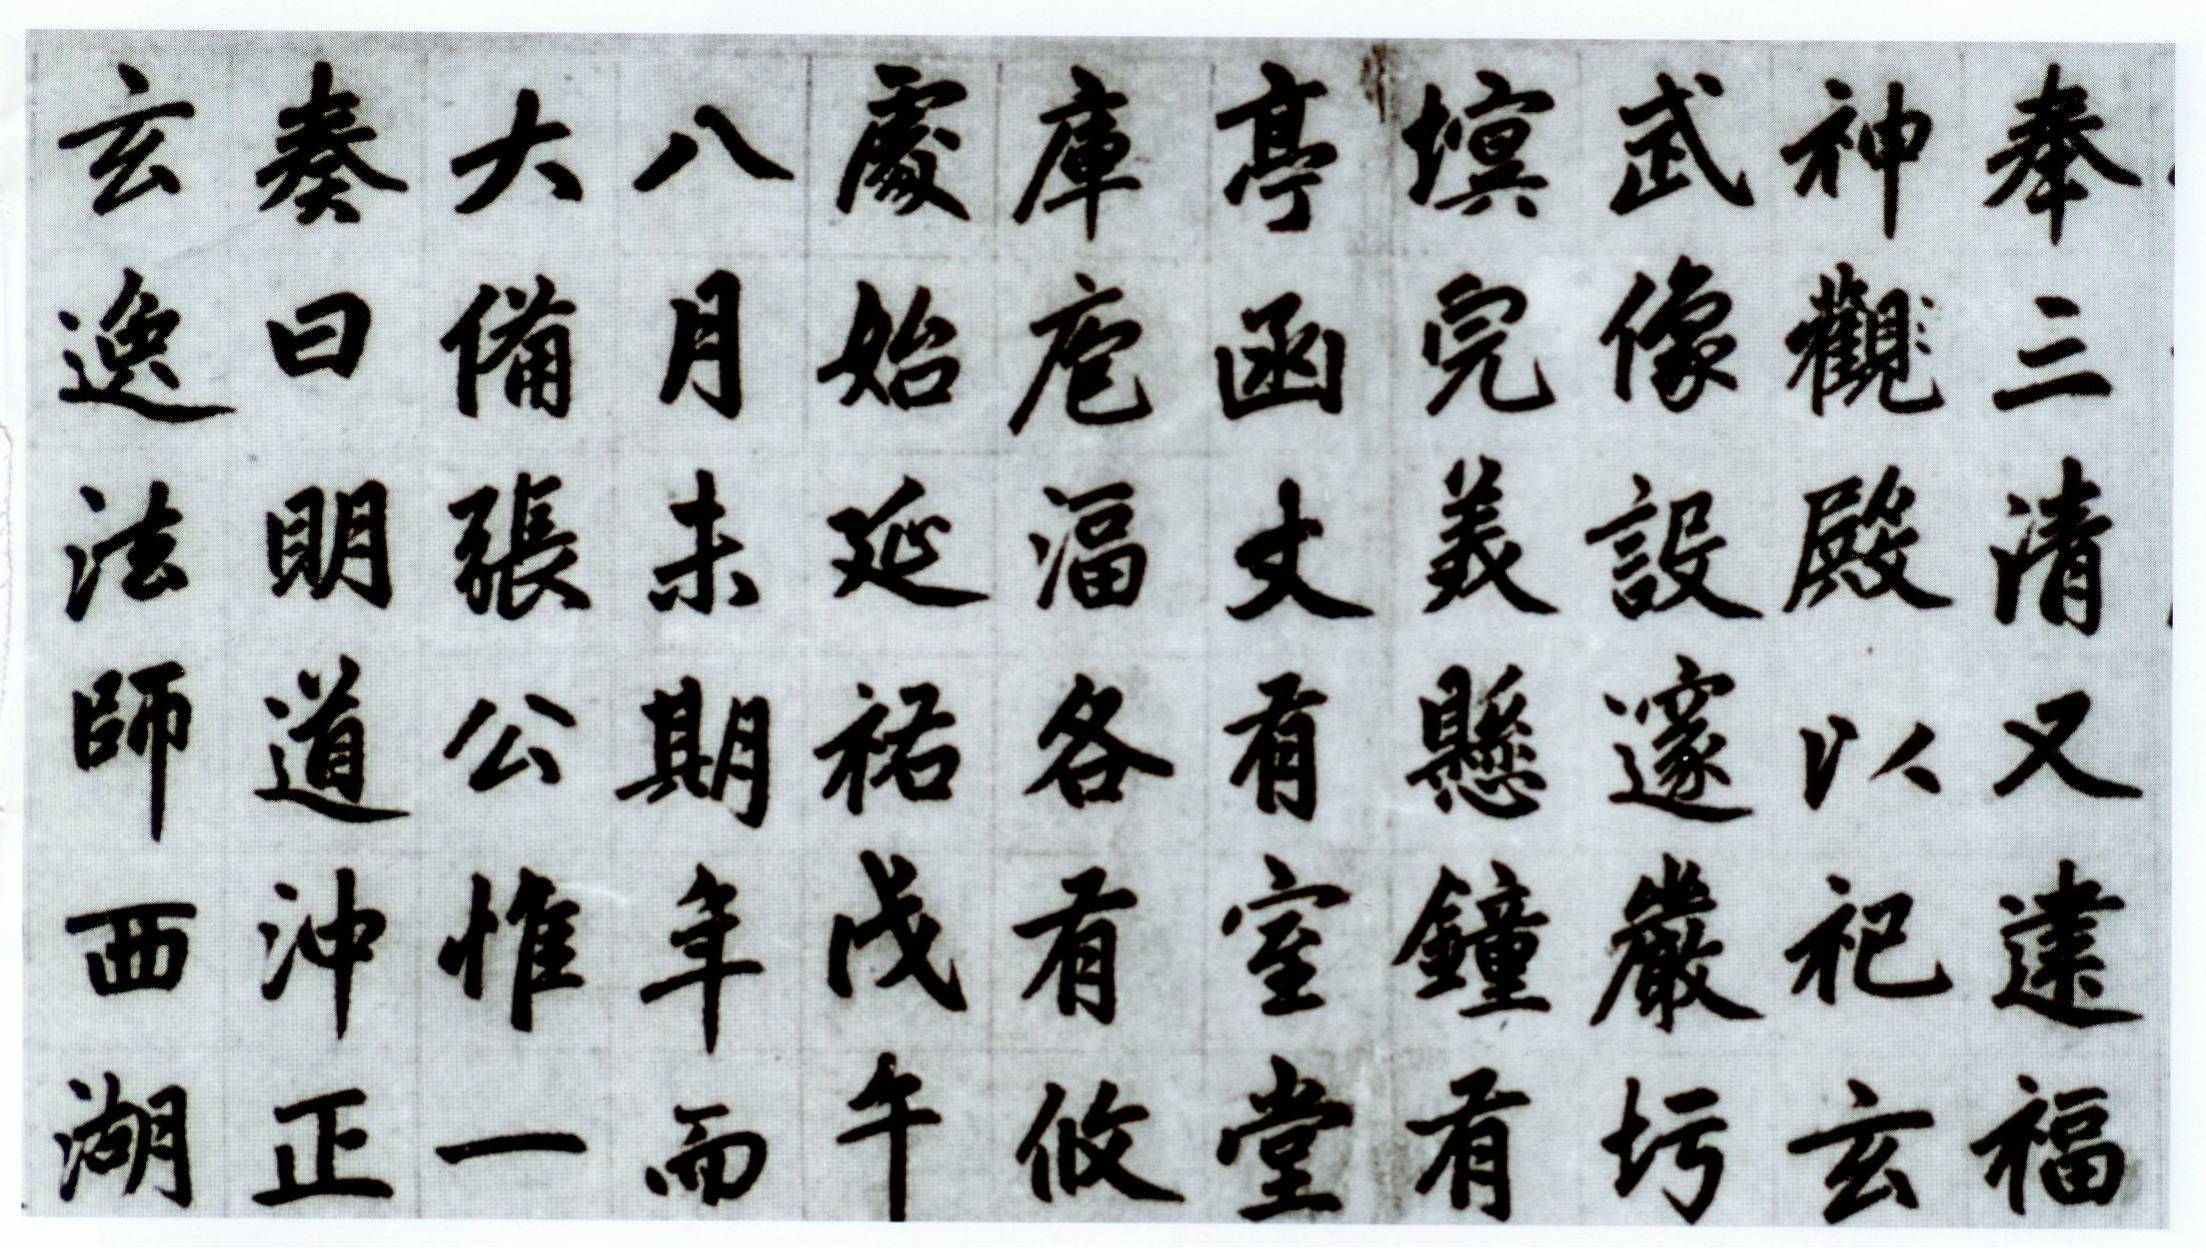 奉三清又建福
神觀殿以祀玄
武像設邃嚴圬
塓完美懸鐘有
亭函丈有室堂
庫庖湢各有攸
處始延祐戊午
八月未期年而
大備張公惟一
奏曰明道沖正
玄逸法師西湖